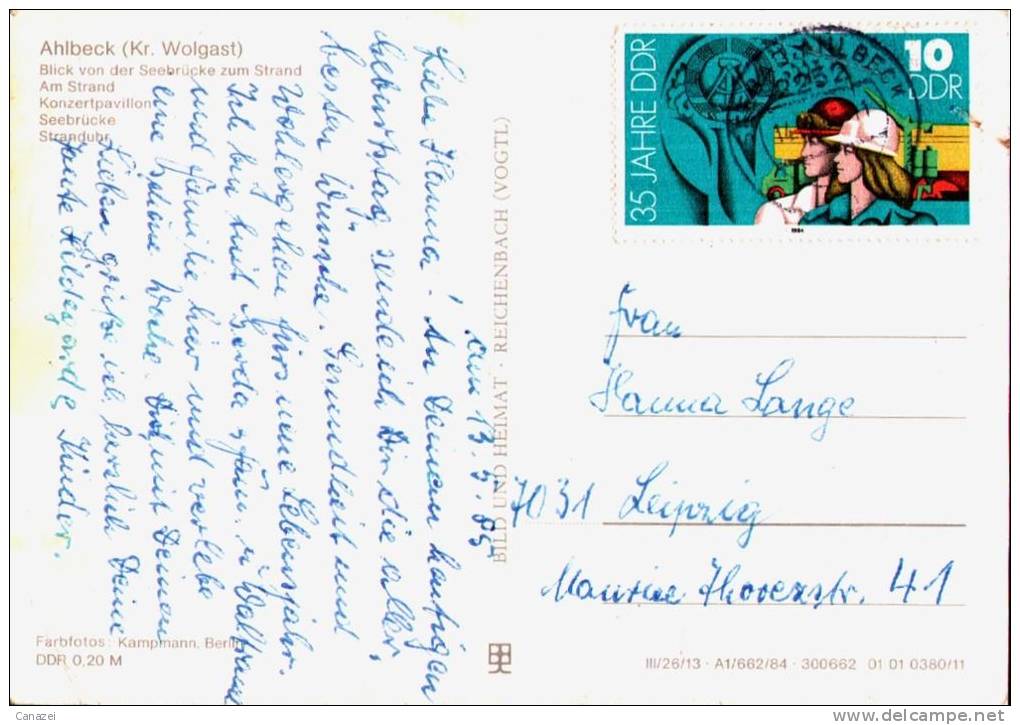 Ahlbeck (Kr. Wolgast)
Blick von der Seebrücke zum Strand
Am Strand
Konzertpavillon
Seebrücke
Stranduhr
am 13.5.85
Liebe Hanna! An Deinem heutigen
Geburtstag sende ich Dir die aller-
besten Wünsche. Gesundheit und
Wohlergehen fürs neue Lebensjahr.
Ich bin mit Gerda, u. Waltraud
und Familie hier und verlebe
eine schöne Woche. Dich mit Deinen
Lieben grüße ich herzlich Deine
Tante Hildegard Kinder.
Farbfotos: Kampmann, Berlin
DDR 0,20 M
BILD UND HEIMAT · REICHENBACH (VOGTL)
35 JAHRE DDR
10
DDR
1984
AHLBECK
Frau
Hanna Lange
7031 Leipzig
41
III/26/13 · A1/662/84 · 300662 01 01 0380/11
Canazei
http://www.delcampe.net